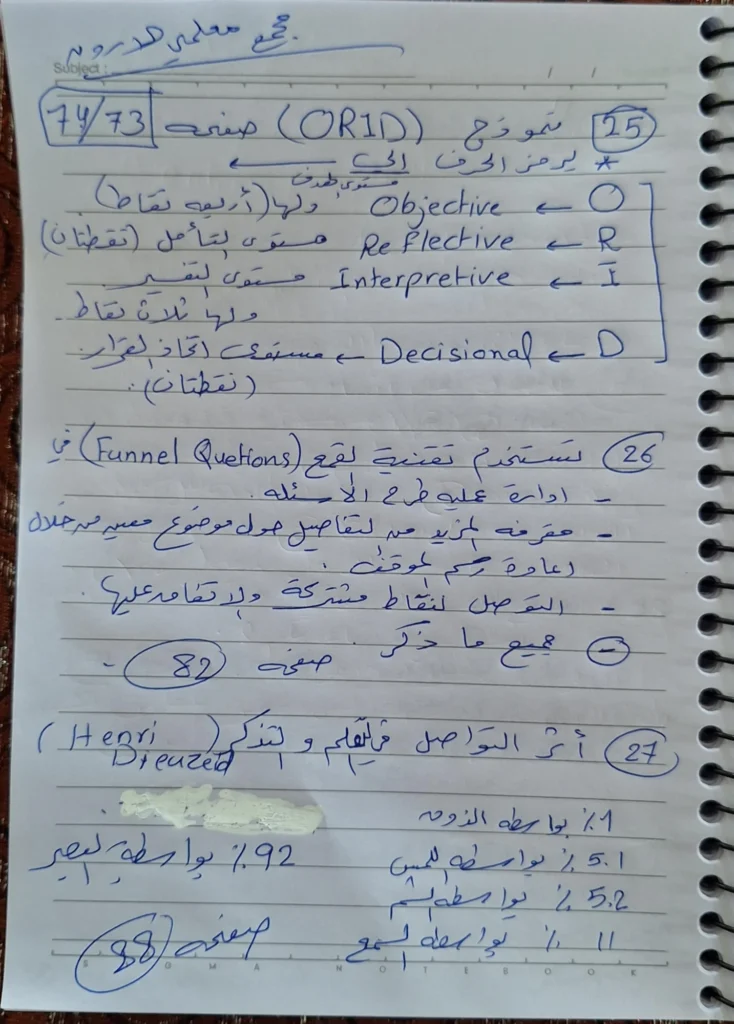 مجمع معلمي الاردن
Subject :
25 نموذج (ORID) صفحه 74/73
* يرمز الحرف الى ←
مستوى الهدف
O ← Objective ولها (أربعه نقاط)
R ← Reflective مستوى التأمل (نقطتان)
I ← Interpretive مستوى التفسير
ولها ثلاث نقاط -
D ← Decisional ← مستوى اتخاذ القرار.
(نقطتان).
26 تستخدم تقنية القمع (Funnel Quetions) في
- ادارة عمليه طرح الأسئله.
- معرفه المزيد من التفاصيل حول موضوع معين من خلال
اعادة رسم الموقف.
- التوصل لنقاط مشتركة والاتفاق عليها.
- جميع ما ذكر. صفحه 82 -
27 أثر التواصل في التعلم والتذكر (Henri
Dieuzed)
1٪ بواسطه الذوق
5.1 ٪ بواسطه اللمس 92٪ بواسطة البصر
5.2 ٪ بواسطه الشم
11 ٪ بواسطه السمع صفحه 88
N O T E B O O K